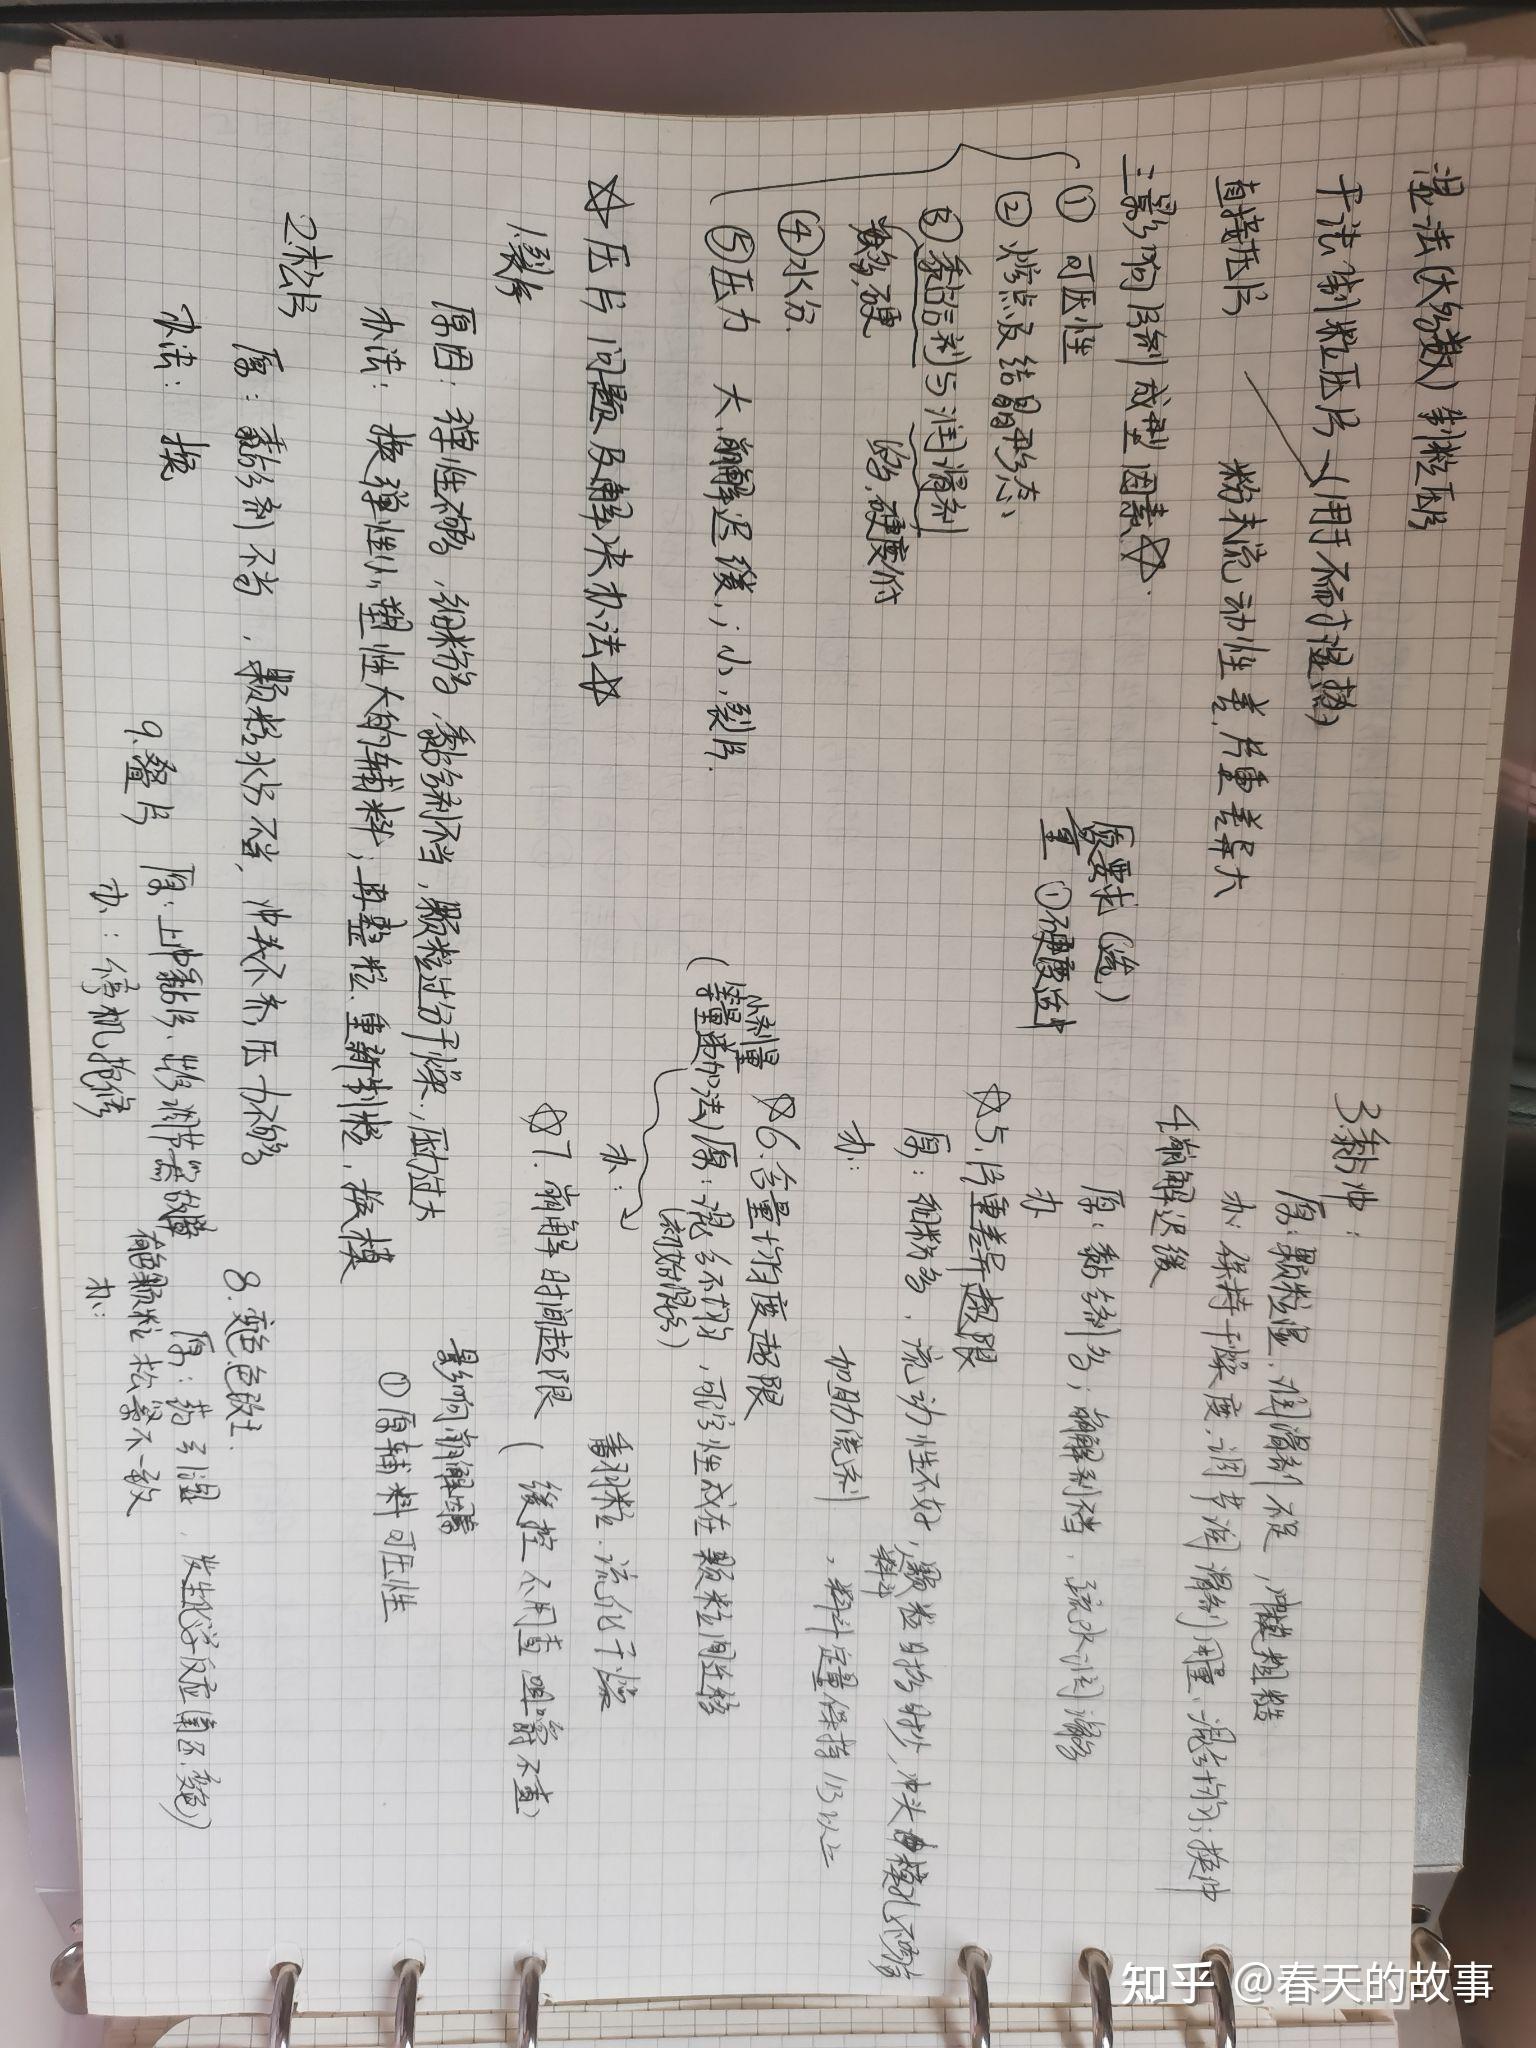 湿法(大多数)制粒压片
干法制粒压片→(用于不耐湿热)
直接压片 粉末流动性差,片重差异大
三影响压制成型因素☆.
① 可压性
② 熔点及结晶形态、
③ 黏合剂与润滑剂
④水分.
⑤压力 大,崩解迟缓,;小,裂片.
质量要求(选)
①硬度适中
☆压片问题及解决办法☆
1.裂片
原因:弹性太多,细粉多,黏合剂不当,颗粒过分干燥.压力过大
办法:换弹性小,塑性大的辅料;再整粒.重新制粒,换模
2.松片
原:黏合剂不当.颗粒水分不当,冲头不齐,压力不够
办法:换
3.黏冲:
原:颗粒湿.润滑剂不足,冲模粗糙
办:保持干燥度.调节润滑剂用量.混合均匀;换冲
4.崩解迟缓
原:黏合剂多;崩解剂 .疏水润滑多
办
☆5.片重差异超限
原:细粉多.流动性不好,颗粒时多时少,冲头 模孔不吻合
料斗
办: 加助流剂,料斗定量保持1/3以上
☆6.含量均匀度超限
小剂量
(等量递加法)原:混合不均匀,可溶性成在颗粒间迁移
办: 重制粒.流化干燥
☆7.崩解时间超限 (缓控不用查 咀嚼不查)
影响崩解因素
①原辅料可压性
8.变色 花斑.
原:药引湿.发生化学反应 变色)
有色颗粒松紧不一致
办:
9.叠片 原:上冲黏片、出片调节器故障
办:停机抢修
知乎 @春天的故事